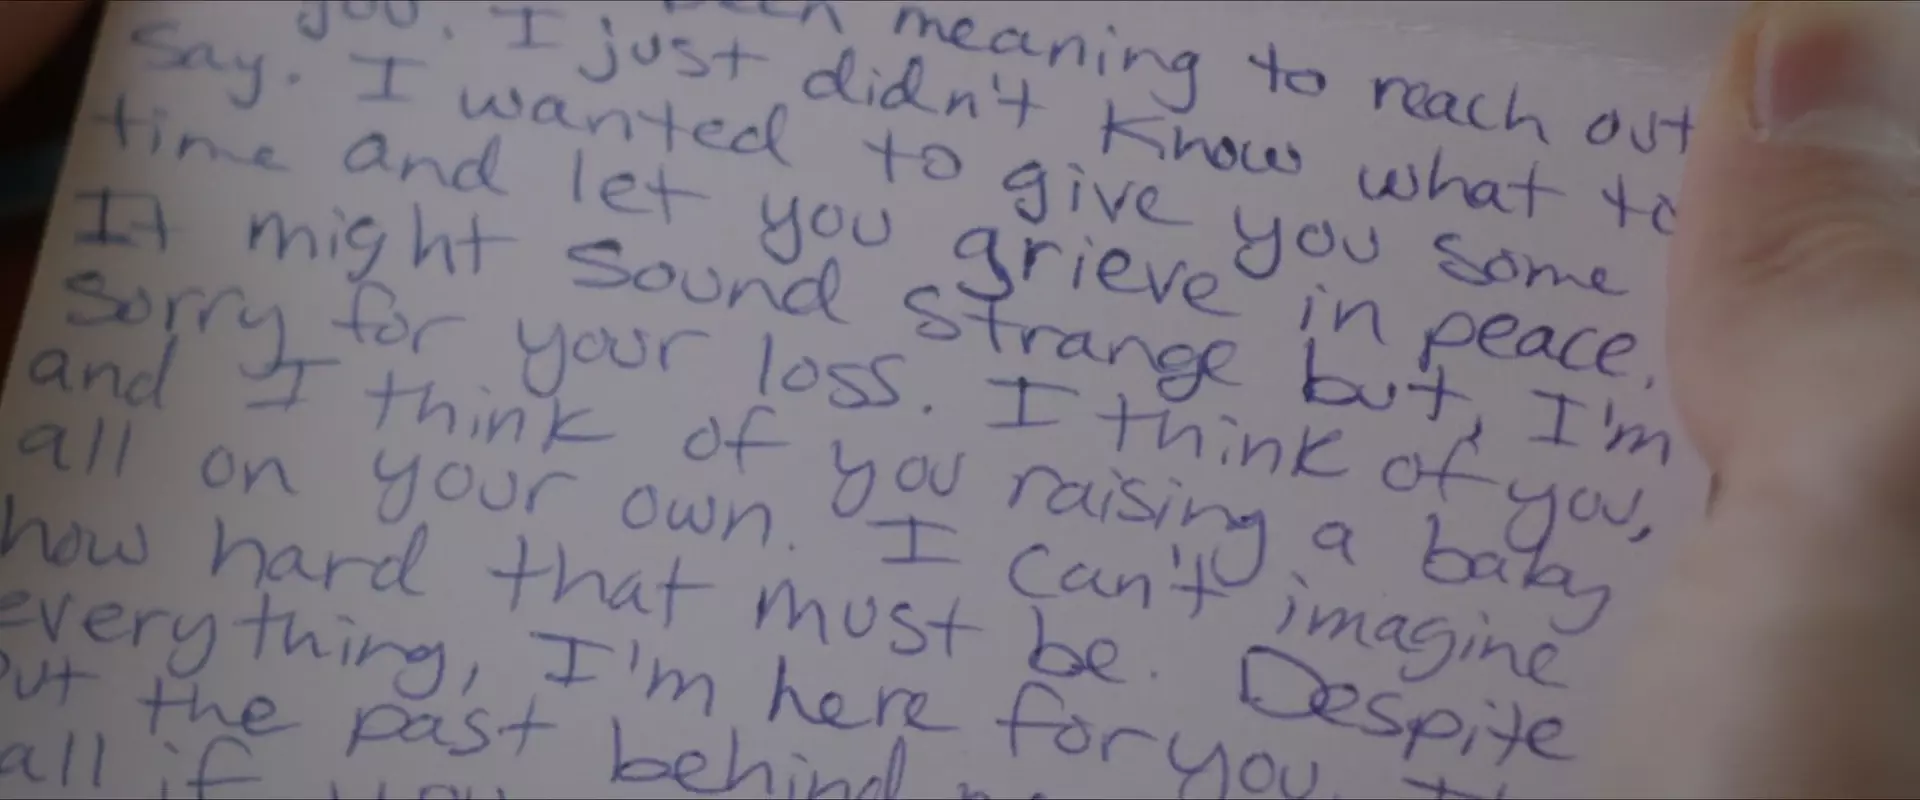 been meaning to reach out
you. I just didn't know what to
say. I wanted to give you some
time and let you grieve in peace.
It might sound strange but, I'm
sorry for your loss. I think of you,
and I think of you raising a baby
all on your own. I can't imagine
how hard that must be. Despite
everything, I'm here for you.
put the past behind
all if you